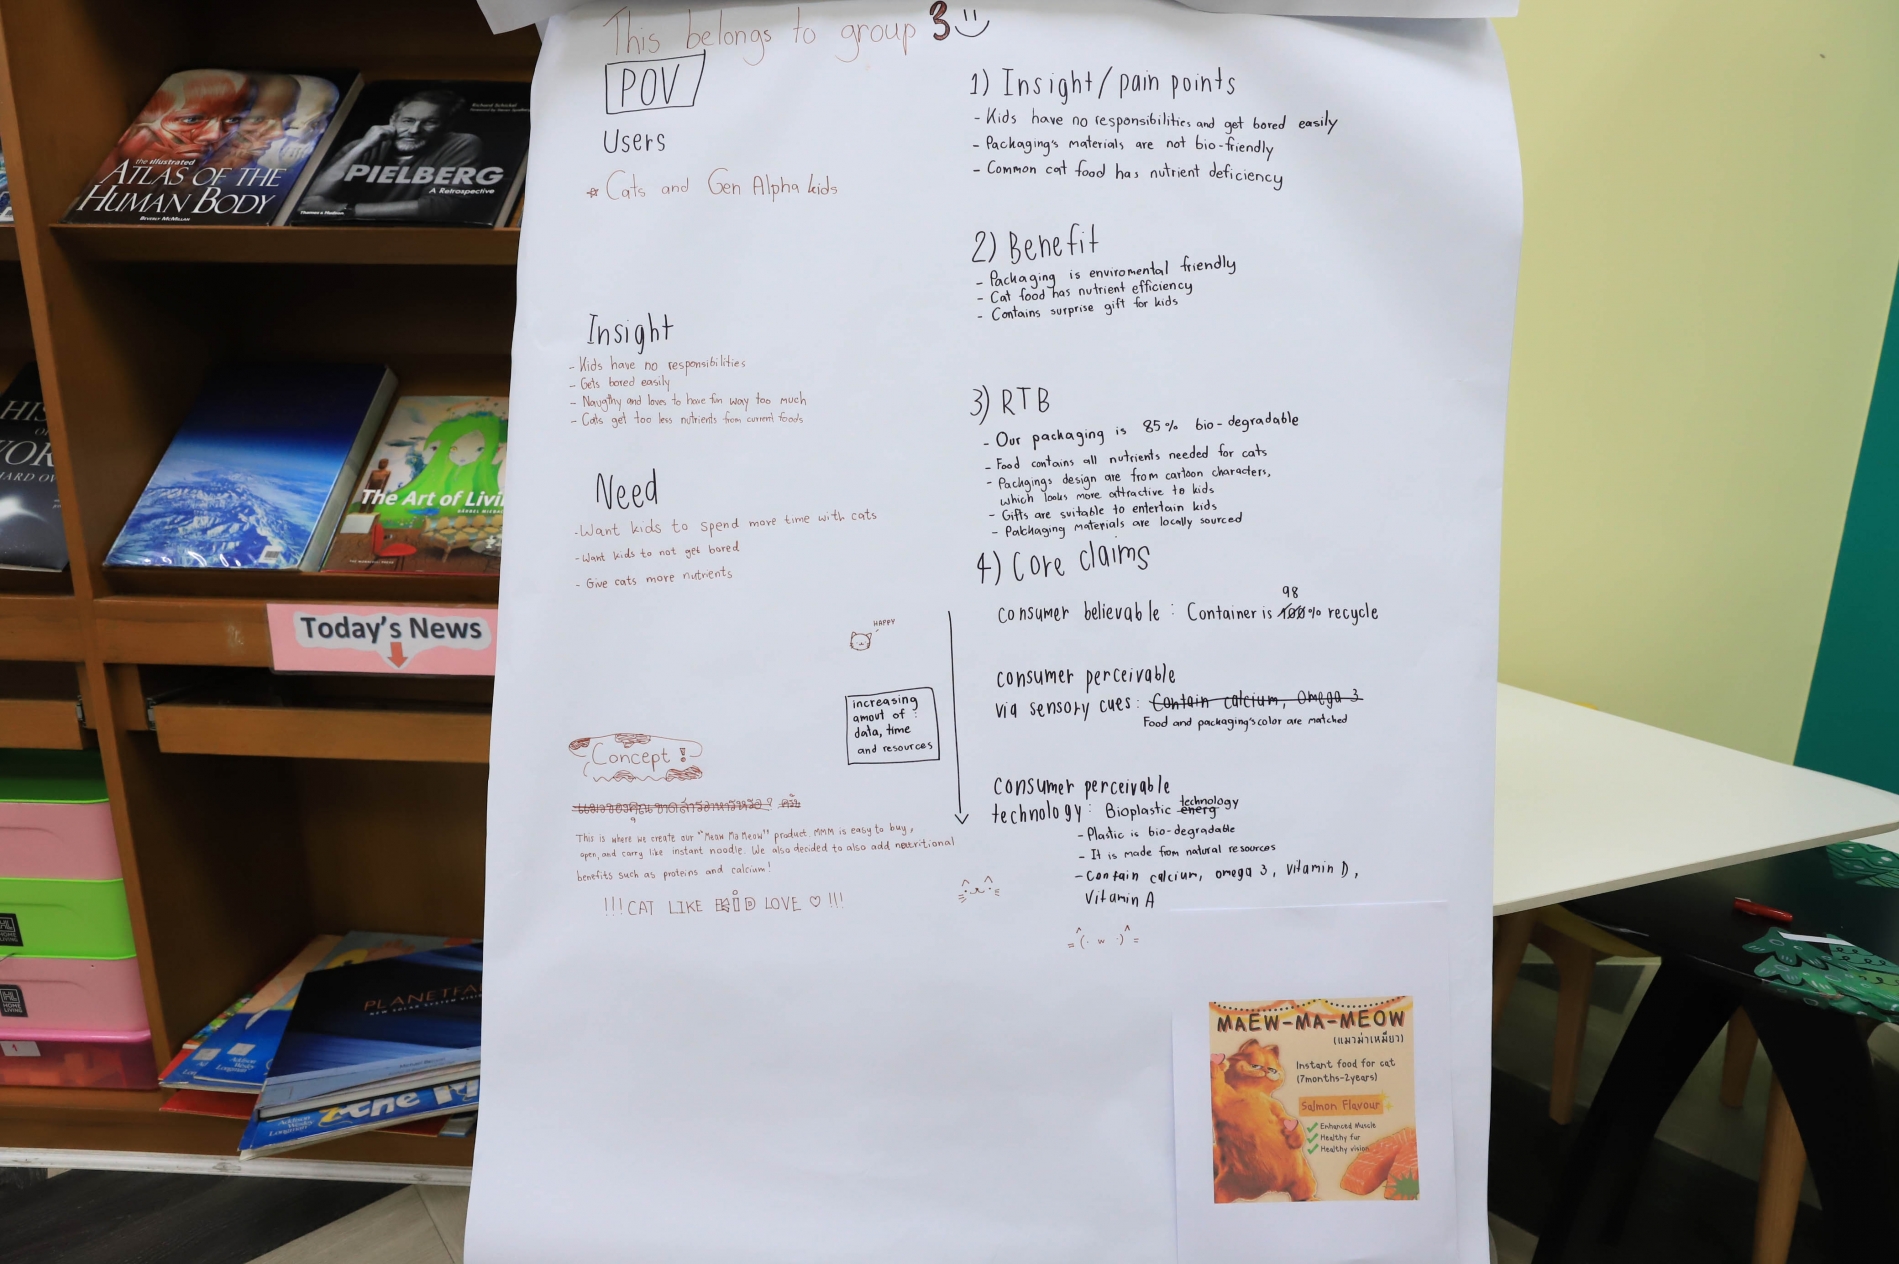 This belongs to group 3
POV
Users
Cats and Gen Alpha kids
Insight
- Kids have no responsibilities
- Gets bored easily
- Naugthy and loves to have fun way too much
- Cats get too less nutrients from current foods
Need
- Want kids to spend more time with cats
- Want kids to not get bored
- Give cats more nutrients
HAPPY
increasing
amout of :
data, time
and resources
Concept !
This is where we create our "Meow Ma Meow" product. MMM is easy to buy,
open, and carry like instant noodle. We also decided to also add neutritional
benefits such as proteins and calcium!
!!! CAT LIKE KID LOVE ♡ !!!
1) Insight / pain points
- Kids have no responsibilities and get bored easily
- Packaging's materials are not bio-friendly
- Common cat food has nutrient deficiency
2) Benefit
- Packaging is enviromental friendly
- Cat food has nutrient efficiency
- Contains surprise gift for kids
3) RTB
- Our packaging is 85% bio-degradable
- Food contains all nutrients needed for cats
- Packgings design are from cartoon characters,
which looks more attractive to kids
- Gifts are suitable to entertain kids
- Palckaging materials are locally sourced
4) Core claims
98
consumer believable : Container is 100% recycle
consumer perceivable
via sensory cues : Contain calcium, Omega 3
Food and packaging's color are matched
consumer perceivable
technology : Bioplastic energ technology
- Plastic is bio-degradable
- It is made from natural resources
- Contain calcium, omega 3, vitamin D,
Vitamin A
MAEW-MA-MEOW
(แมวม่าเหมียว)
Instant food for cat
(7months-2years)
Salmon Flavour
Enhanced Muscle
Healthy fur
Healthy vision
the illustrated
ATLAS OF THE
HUMAN BODY
BEVERLY McMILLAN
Richard Schickel
SPIELBERG
A Retrospective
Thames & Hudson
The Art of Livi
BÄRBEL
Today's News
PLANETFA
Addison
Wesley
Longman
The
HOME
LIVING